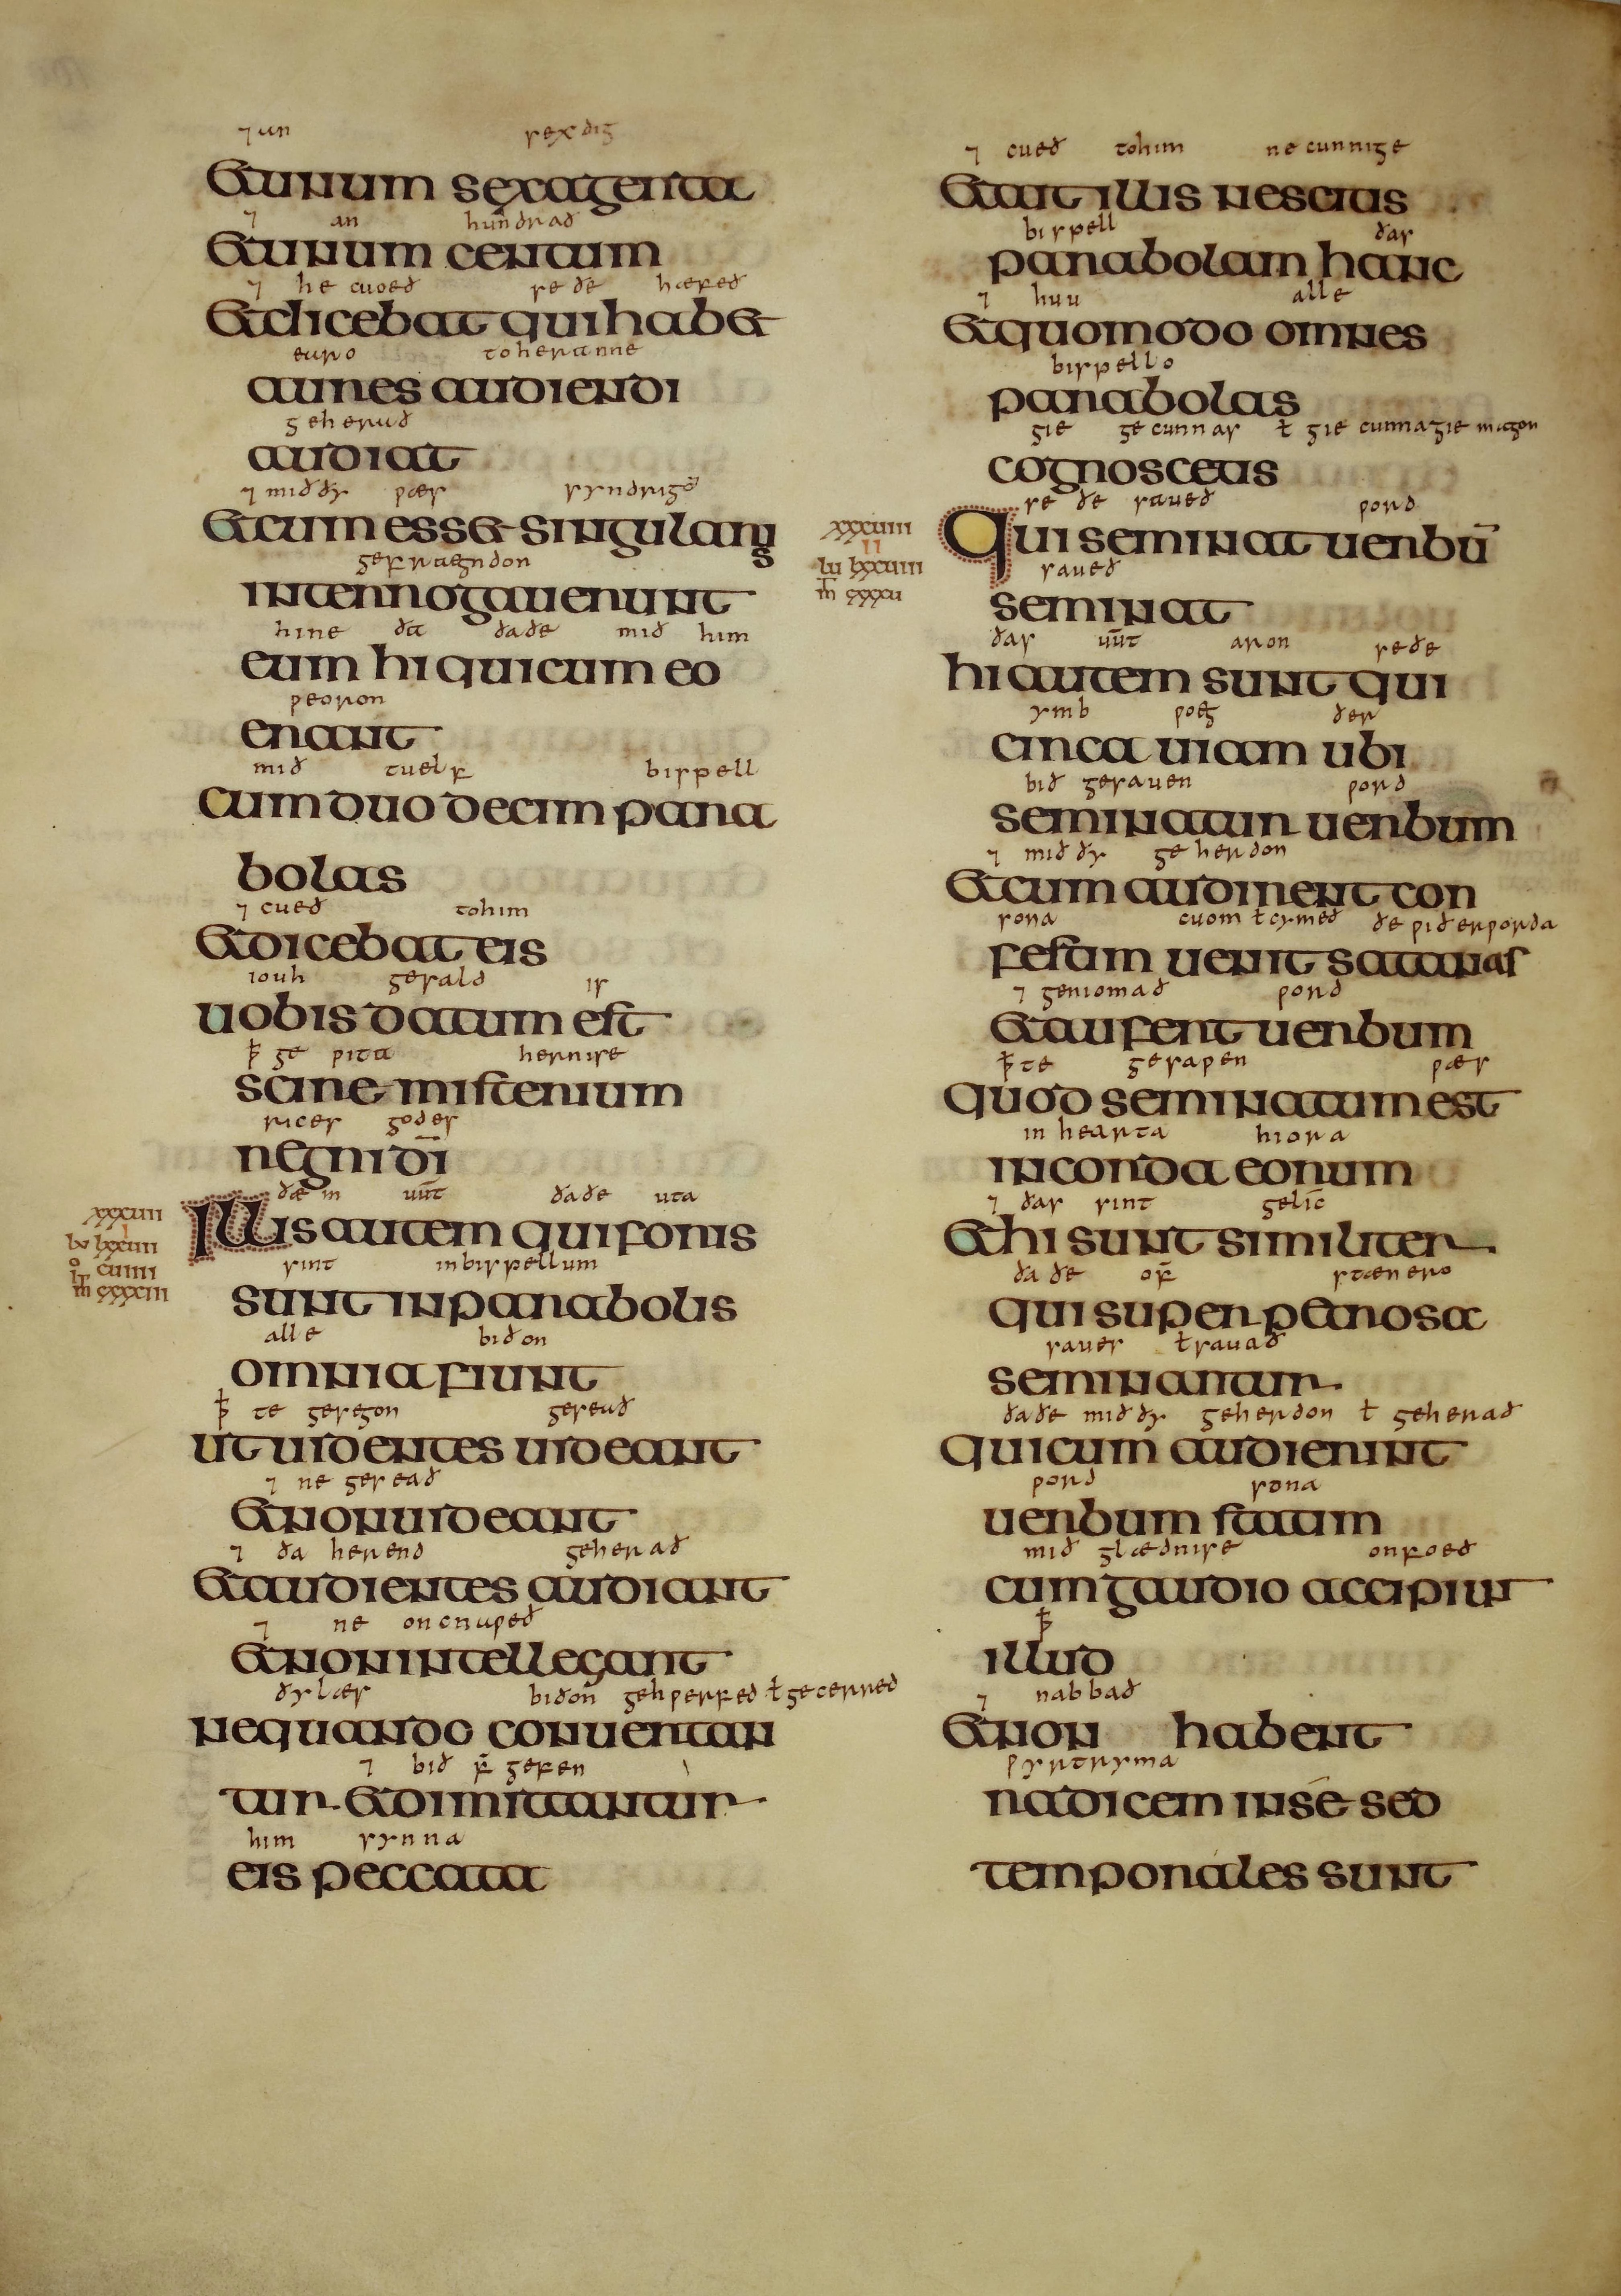 ⁊ un sexdig
Et unum sexagenta
⁊ an hundrað
Et unum centum
⁊ he cuoeð se ðe hæfeð
Et dicebat qui habet
earo to heranne
aures audiendi
geherað
audiat
⁊ mið ðy wæs syndrige
Et cum esset singularis
gefrægndon
interrogauerunt
hine ða ðaðe mið him
eum hi qui cum eo
weoron
erant
mið tuelf bispell
cum duodecim para
bolas
⁊ cueð to him
Et dicebat eis
iouh gesald is
uobis datum est
ꝥ ge wita hernise
scire misterium
rices godes
regni dī
xxxuii
I
lu lxxuii
iō cuiiii
m̄ cxxxiii
ðæm uūt ðaðe uta
Illis autem qui foris
sint in bispellum
sunt in parabolis
alle biðon
omnia fiunt
ꝥte gesegon geseað
ut uidentes uideant
⁊ ne geseað
et non uideant
⁊ ða herend geherað
Et audientes audiant
⁊ ne oncnaweð
et non intellegant
ðylæs biðon gehwerfed ł gecerred
nequando conuertan
⁊ bið f̄ gefen
tur et dimittantur
him synna
eis peccata
⁊ cueð to him ne cunnige
Et ait illis nescitis
bispell ðas
parabolam hanc
⁊ huu alle
Et quomodo omnes
bispello
parabolas
gie ge cunnas ł gie cunna gie magon
cognoscetis
xxxuiii
II
lu lxxuiii
m̄ cxxxu
se ðe saueð word
Qui seminat uerbū
saueð
seminat
ðas uūt aron seðe
hi autem sunt qui
ymb woeg ðer
circa uiam ubi
bið gesauen word
seminatur uerbum
⁊ mið ðy geherdon
Et cum audierint con
sona cuom ł cymeð ðe wiðerworda
festim uenit satanas
⁊ geniomað word
et aufert uerbum
ꝥte gesawen wæs
quod seminatum est
in hearta hiora
in corda eorum
⁊ ðas sint gelīc
Et hi sunt similiter
ðaðe of̄ stænero
qui super petrosa
saues ł sauað
seminantur
ðaðe mið ðy geherdon ł geherað
qui cum audierint
word sona
uerbum statim
mið glædnise onfoeð
cum gaudio accipiunt
ꝥ
illud
⁊ nabbað
Et non habent
wyrtryma
radicem in sē sed
temporales sunt